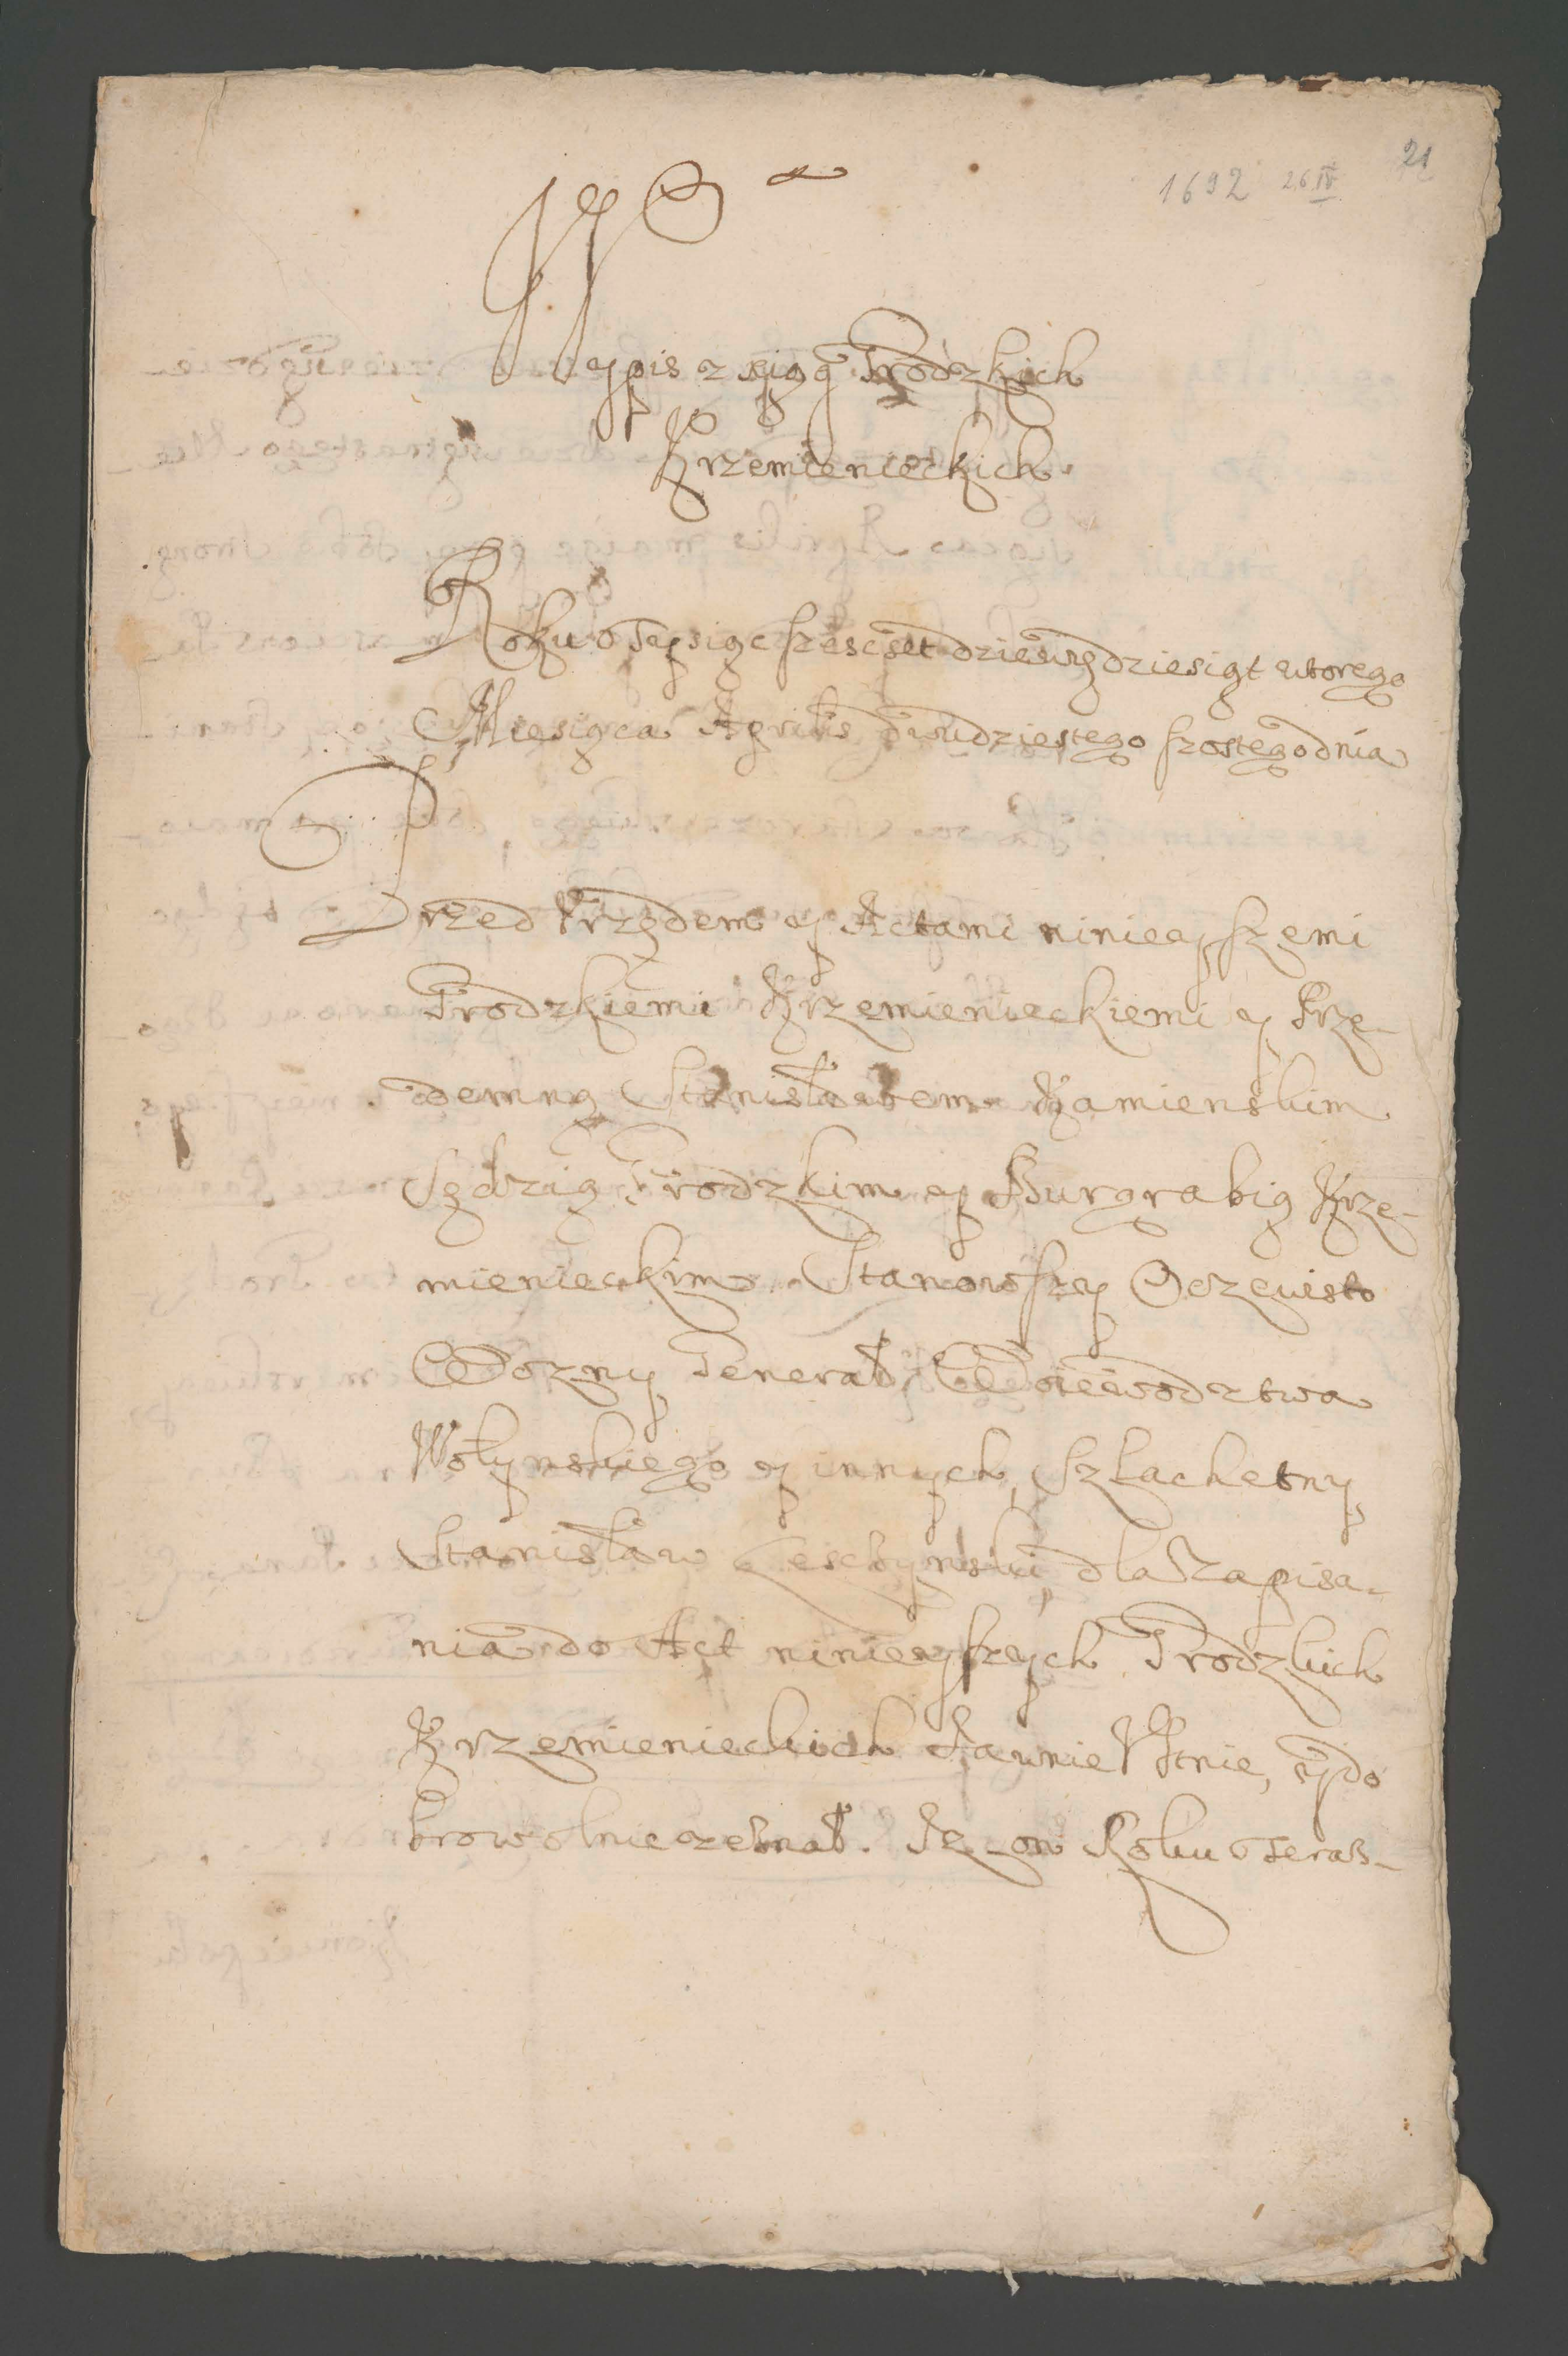 21
1692 26 IV
Wypis z xiąg Grodzkich
Krzemienieckich
Roku Tysiąc szescset dziewiędziesiąt wtorego
Miesiąca Aprilis dwudziestego szostego dnia
Przed Vrzędem y Actami ninieyszemi
Grodzkiemi Krzemienieckiemi y Prze-
demną Stanisławem Kamienskim
Sędzią Grodzkim y Burgrabią Krze-
mienieckim Stanowszy Oczewisto
Wozny Generał Woiewodztwa
Wołynskiego y innych Szlachetny
Stanisław dla Zapisa-
nia do Act ninieyszych Grodzkich
Krzemienieckich Jawnie Vstnie, y do
browolnie zeznał. Jz on Roku Teraz-